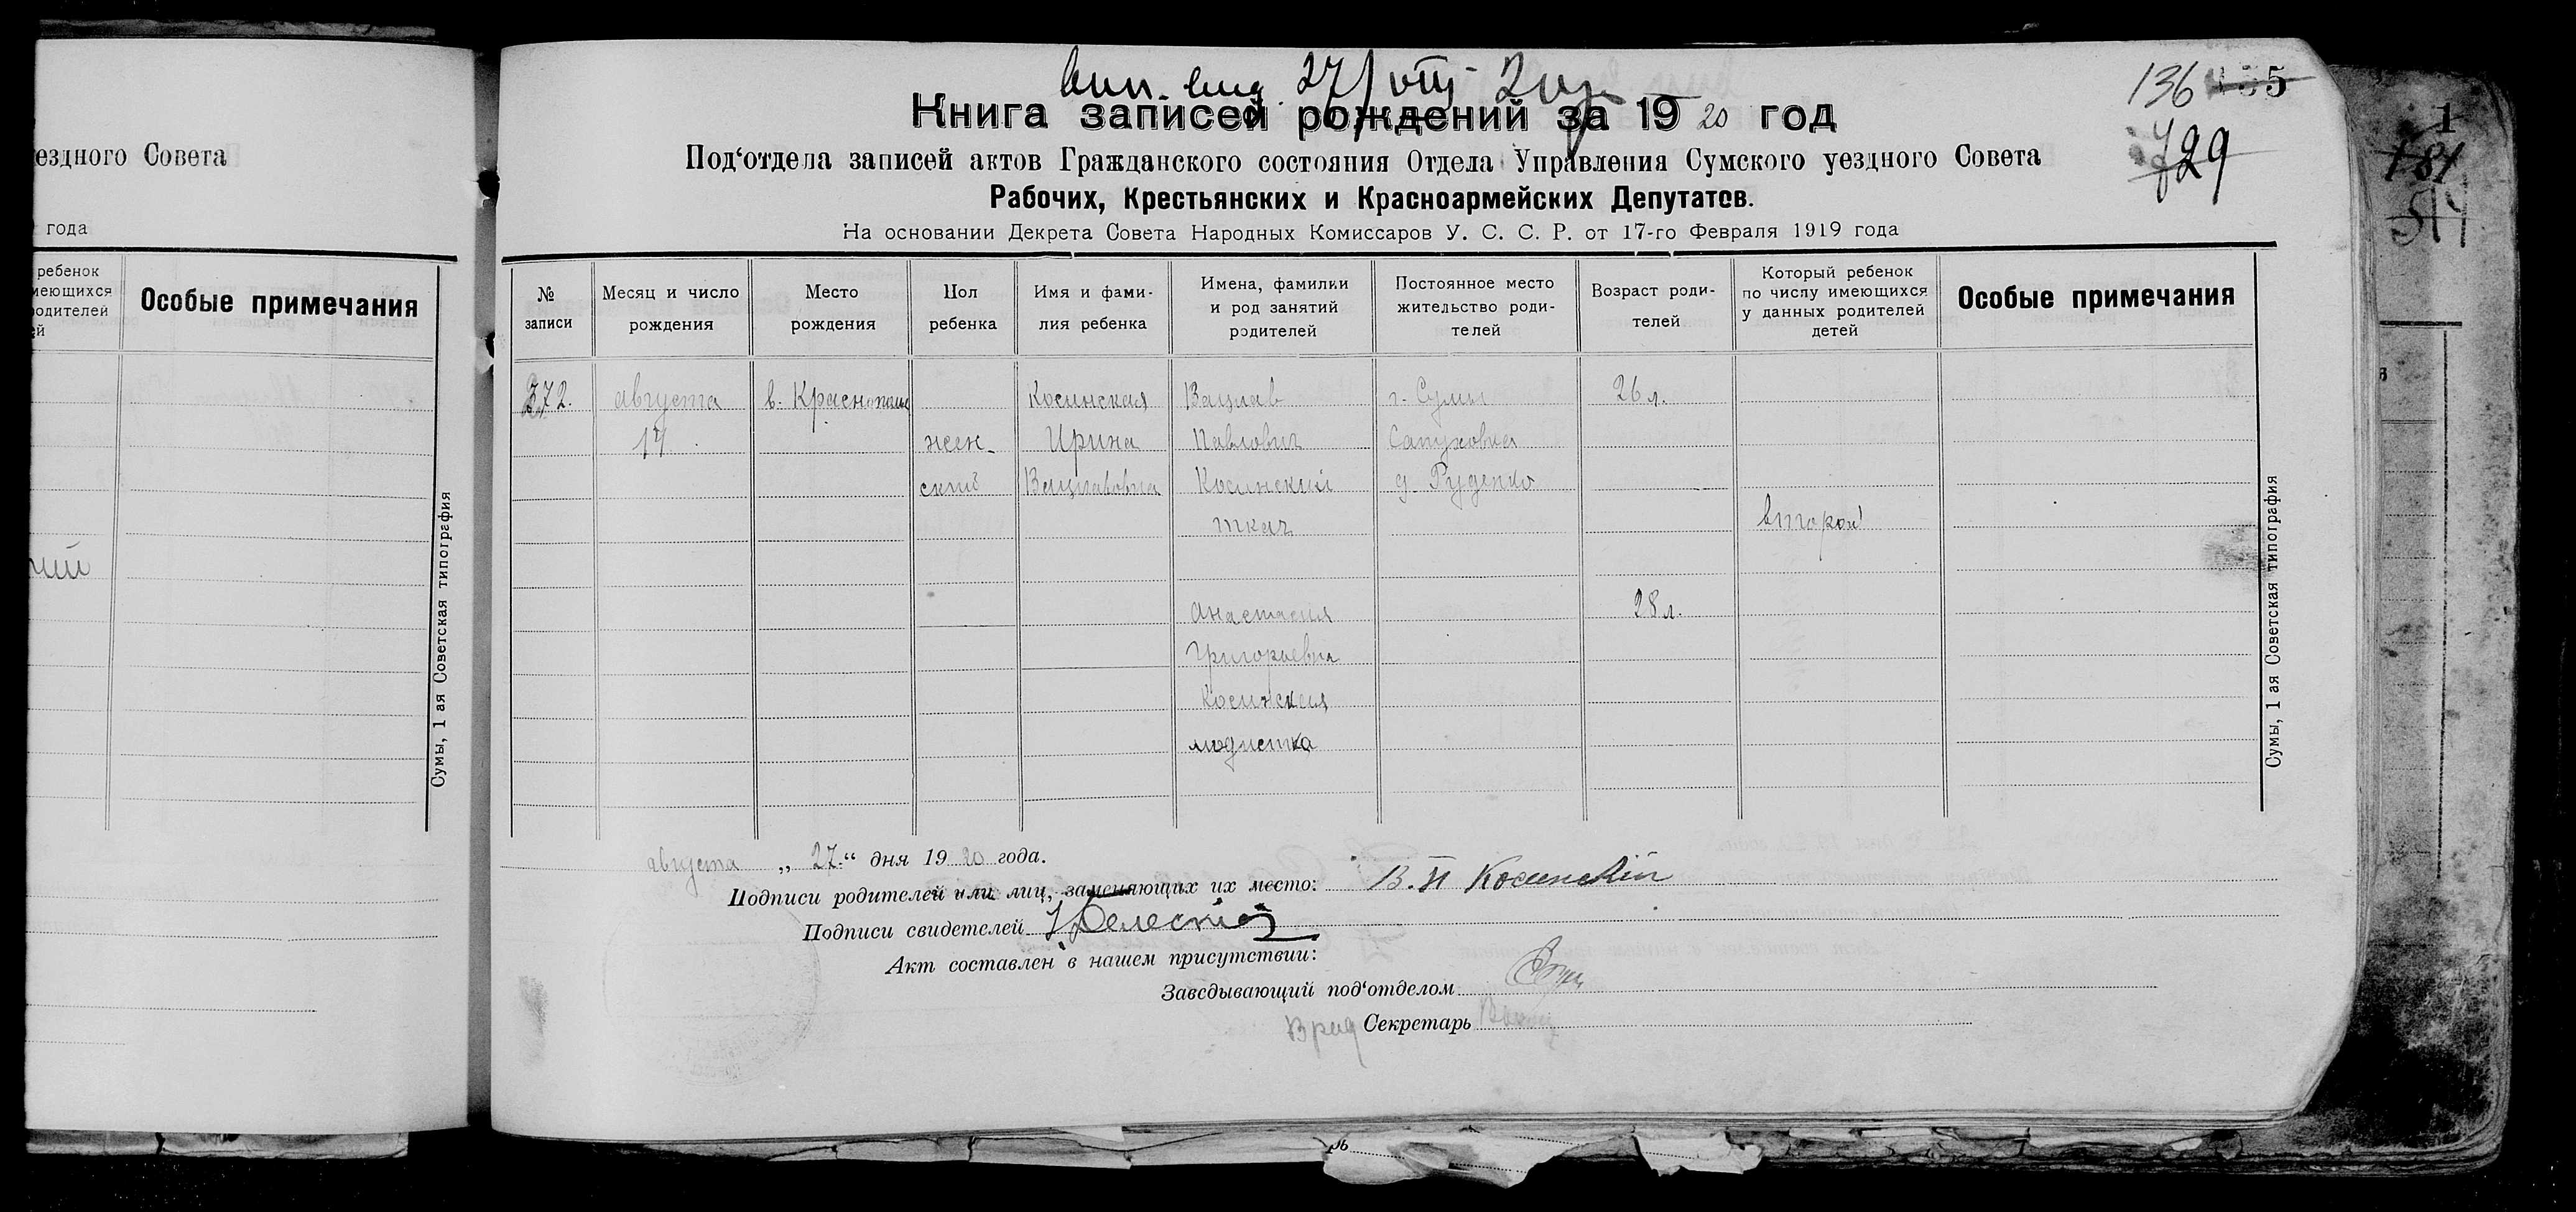 вып. выд. 27/VIII-20г.
136
5
729
Книга записей рождений за 1920 год
Под‘отдела записей актов Гражданского состояния Отдела Управления Сумского уездного Совета
Рабочих, Крестьянских и Красноармейских Депутатов.
На основании Декрета Совета Народных Комиссаров У. С. С. Р. от 17-го Февраля 1919 года
ездного Совета
года
ребенок
имеющихся
родителей
ей
Особые примечания
Сумы, 1 ая Советская типография
№
записи
Месяц и число
рождения
Место
рождения
Пол
ребенка
Имя и фами-
лия ребенка
Имена, фамилии
и род занятий
родителей
Постоянное место
жительство роди-
телей
Возраст роди-
телей
Который ребенок
по числу имеющихся
у данных родителей
детей
Особые примечания
372.
августа
17
в. Краснополье
жен-
ский
Косинская
Ирина
Вацлавовна
Вацлав
Павлович
Косинский
ткач
Анастасия
Григорьевна
Косинская
модистка
г. Сумы
Сапуховка
д. Руденко
26 л.
28 л.
второй
Сумы, 1 ая Советская типография
августа „27“ дня 1920 года.
Подписи родителей или лиц, заменяющих их место: В. П Косинский
Подписи свидетелей
Акт составлен в нашем присутствии:
Заведывающий под‘отделом
Врид Секретарь
1
181
514